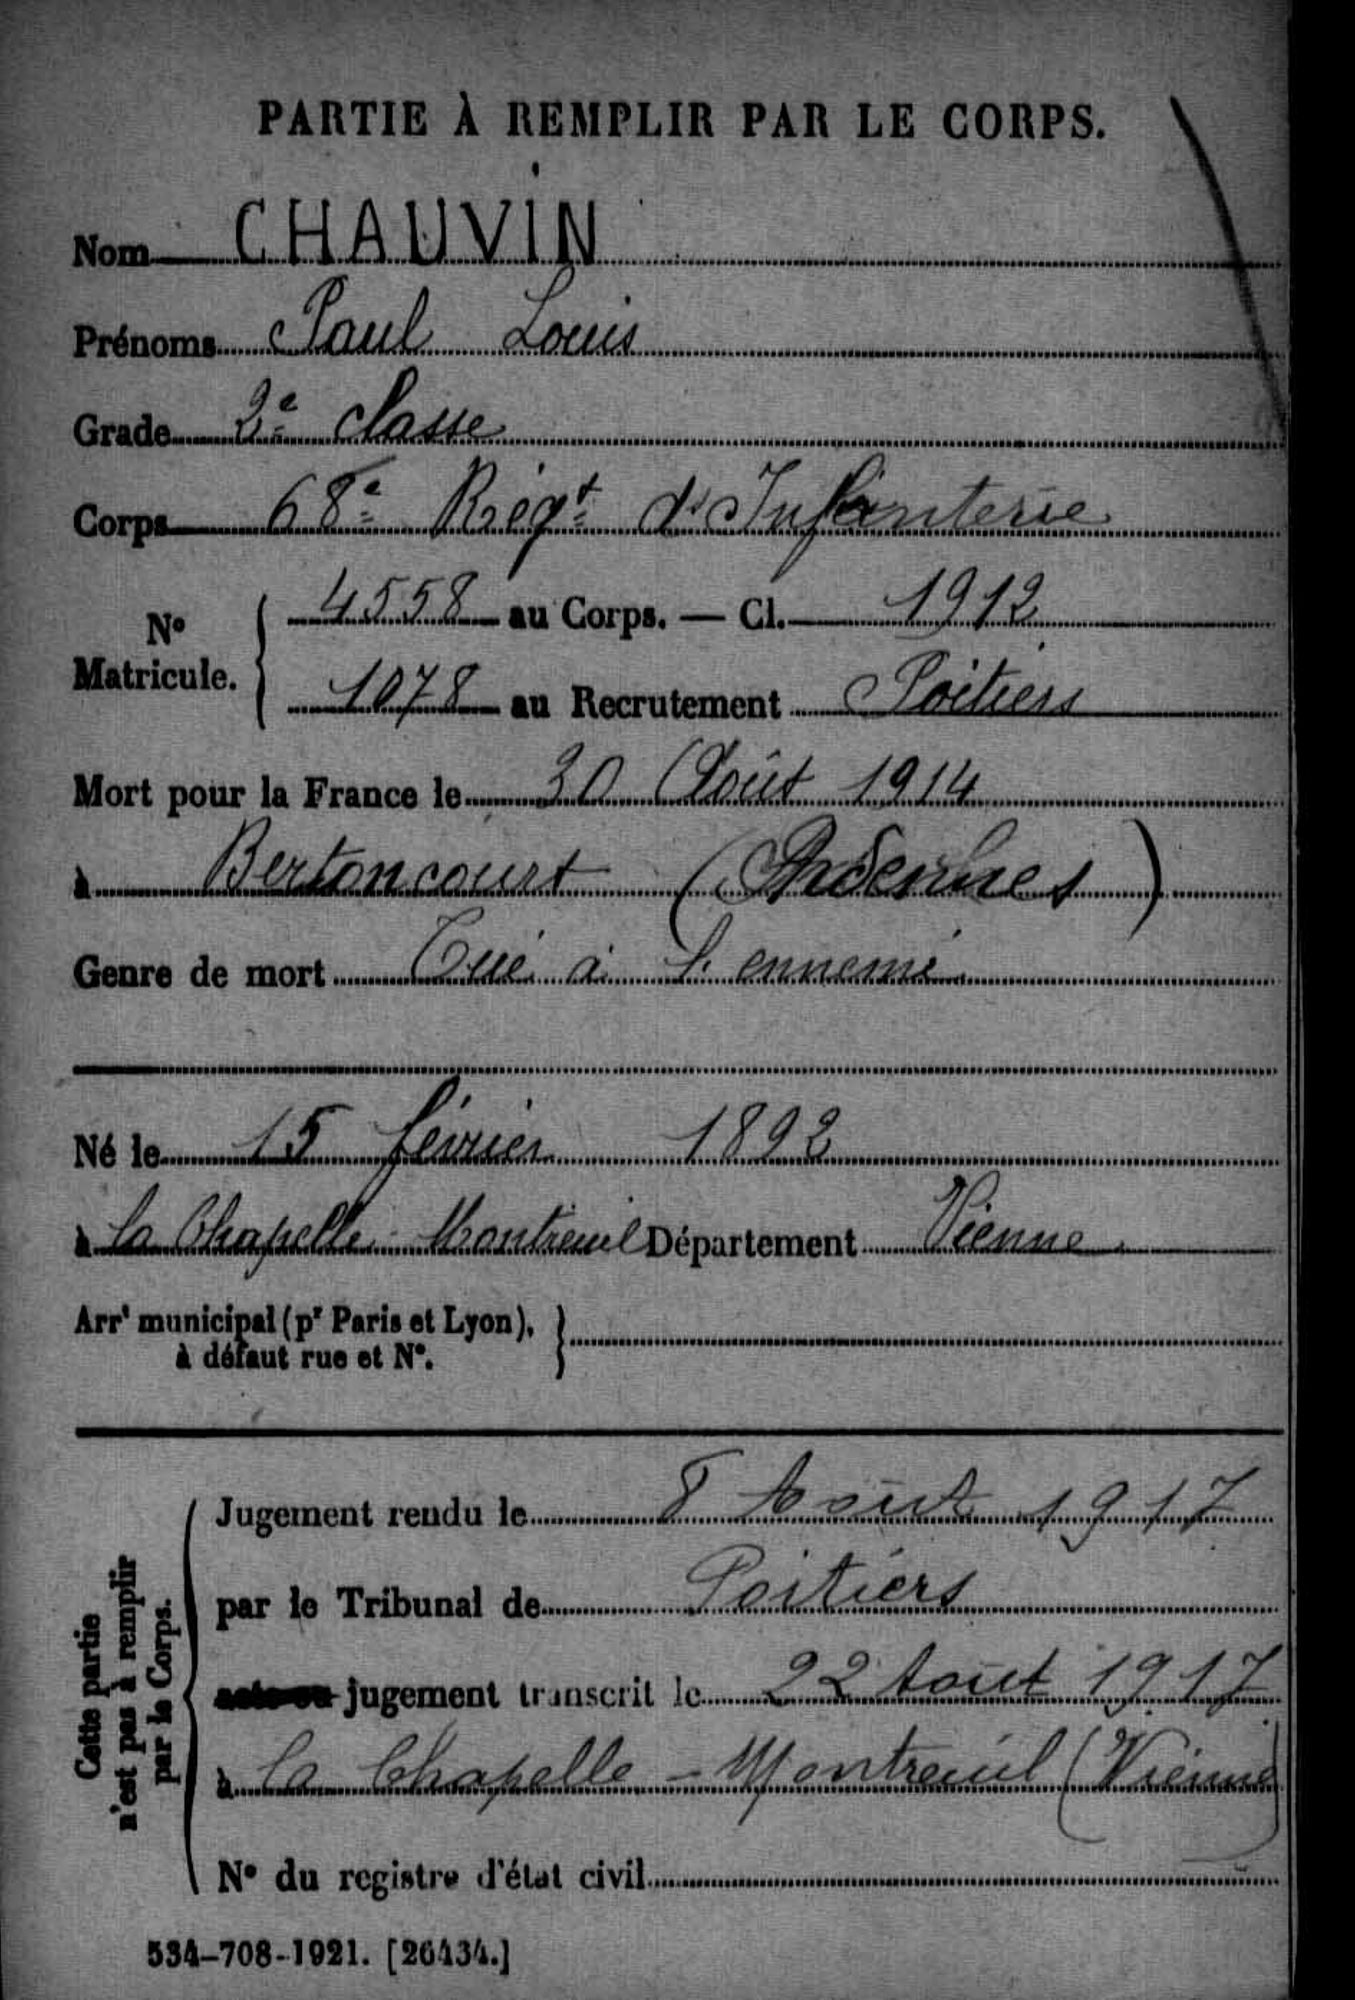 PARTIE À REMPLIR PAR LE CORPS.
Nom CHAUVIN
Prénoms Paul Louis
Grade 2e classe
Corps 68e Régt d'Infanterie
No Matricule. 4558 au Corps. — Cl. 1912
1078 au Recrutement Poitiers
Mort pour la France le 30 Août 1914
à Bertoncourt (Ardennes)
Genre de mort Tué à l'ennemi
Né le 15 février 1892
à la Chapelle Montreuil Département Vienne
Arrt municipal (pr Paris et Lyon),
à défaut rue et No.
Cette partie
n'est pas à remplir
par le Corps.
Jugement rendu le 8 Août 1917
par le Tribunal de Poitiers
acte ou jugement transcrit le 22 Août 1917
à la Chapelle - Montreuil (Vienne)
No du registre d'état civil
534-708-1921. [26434.]